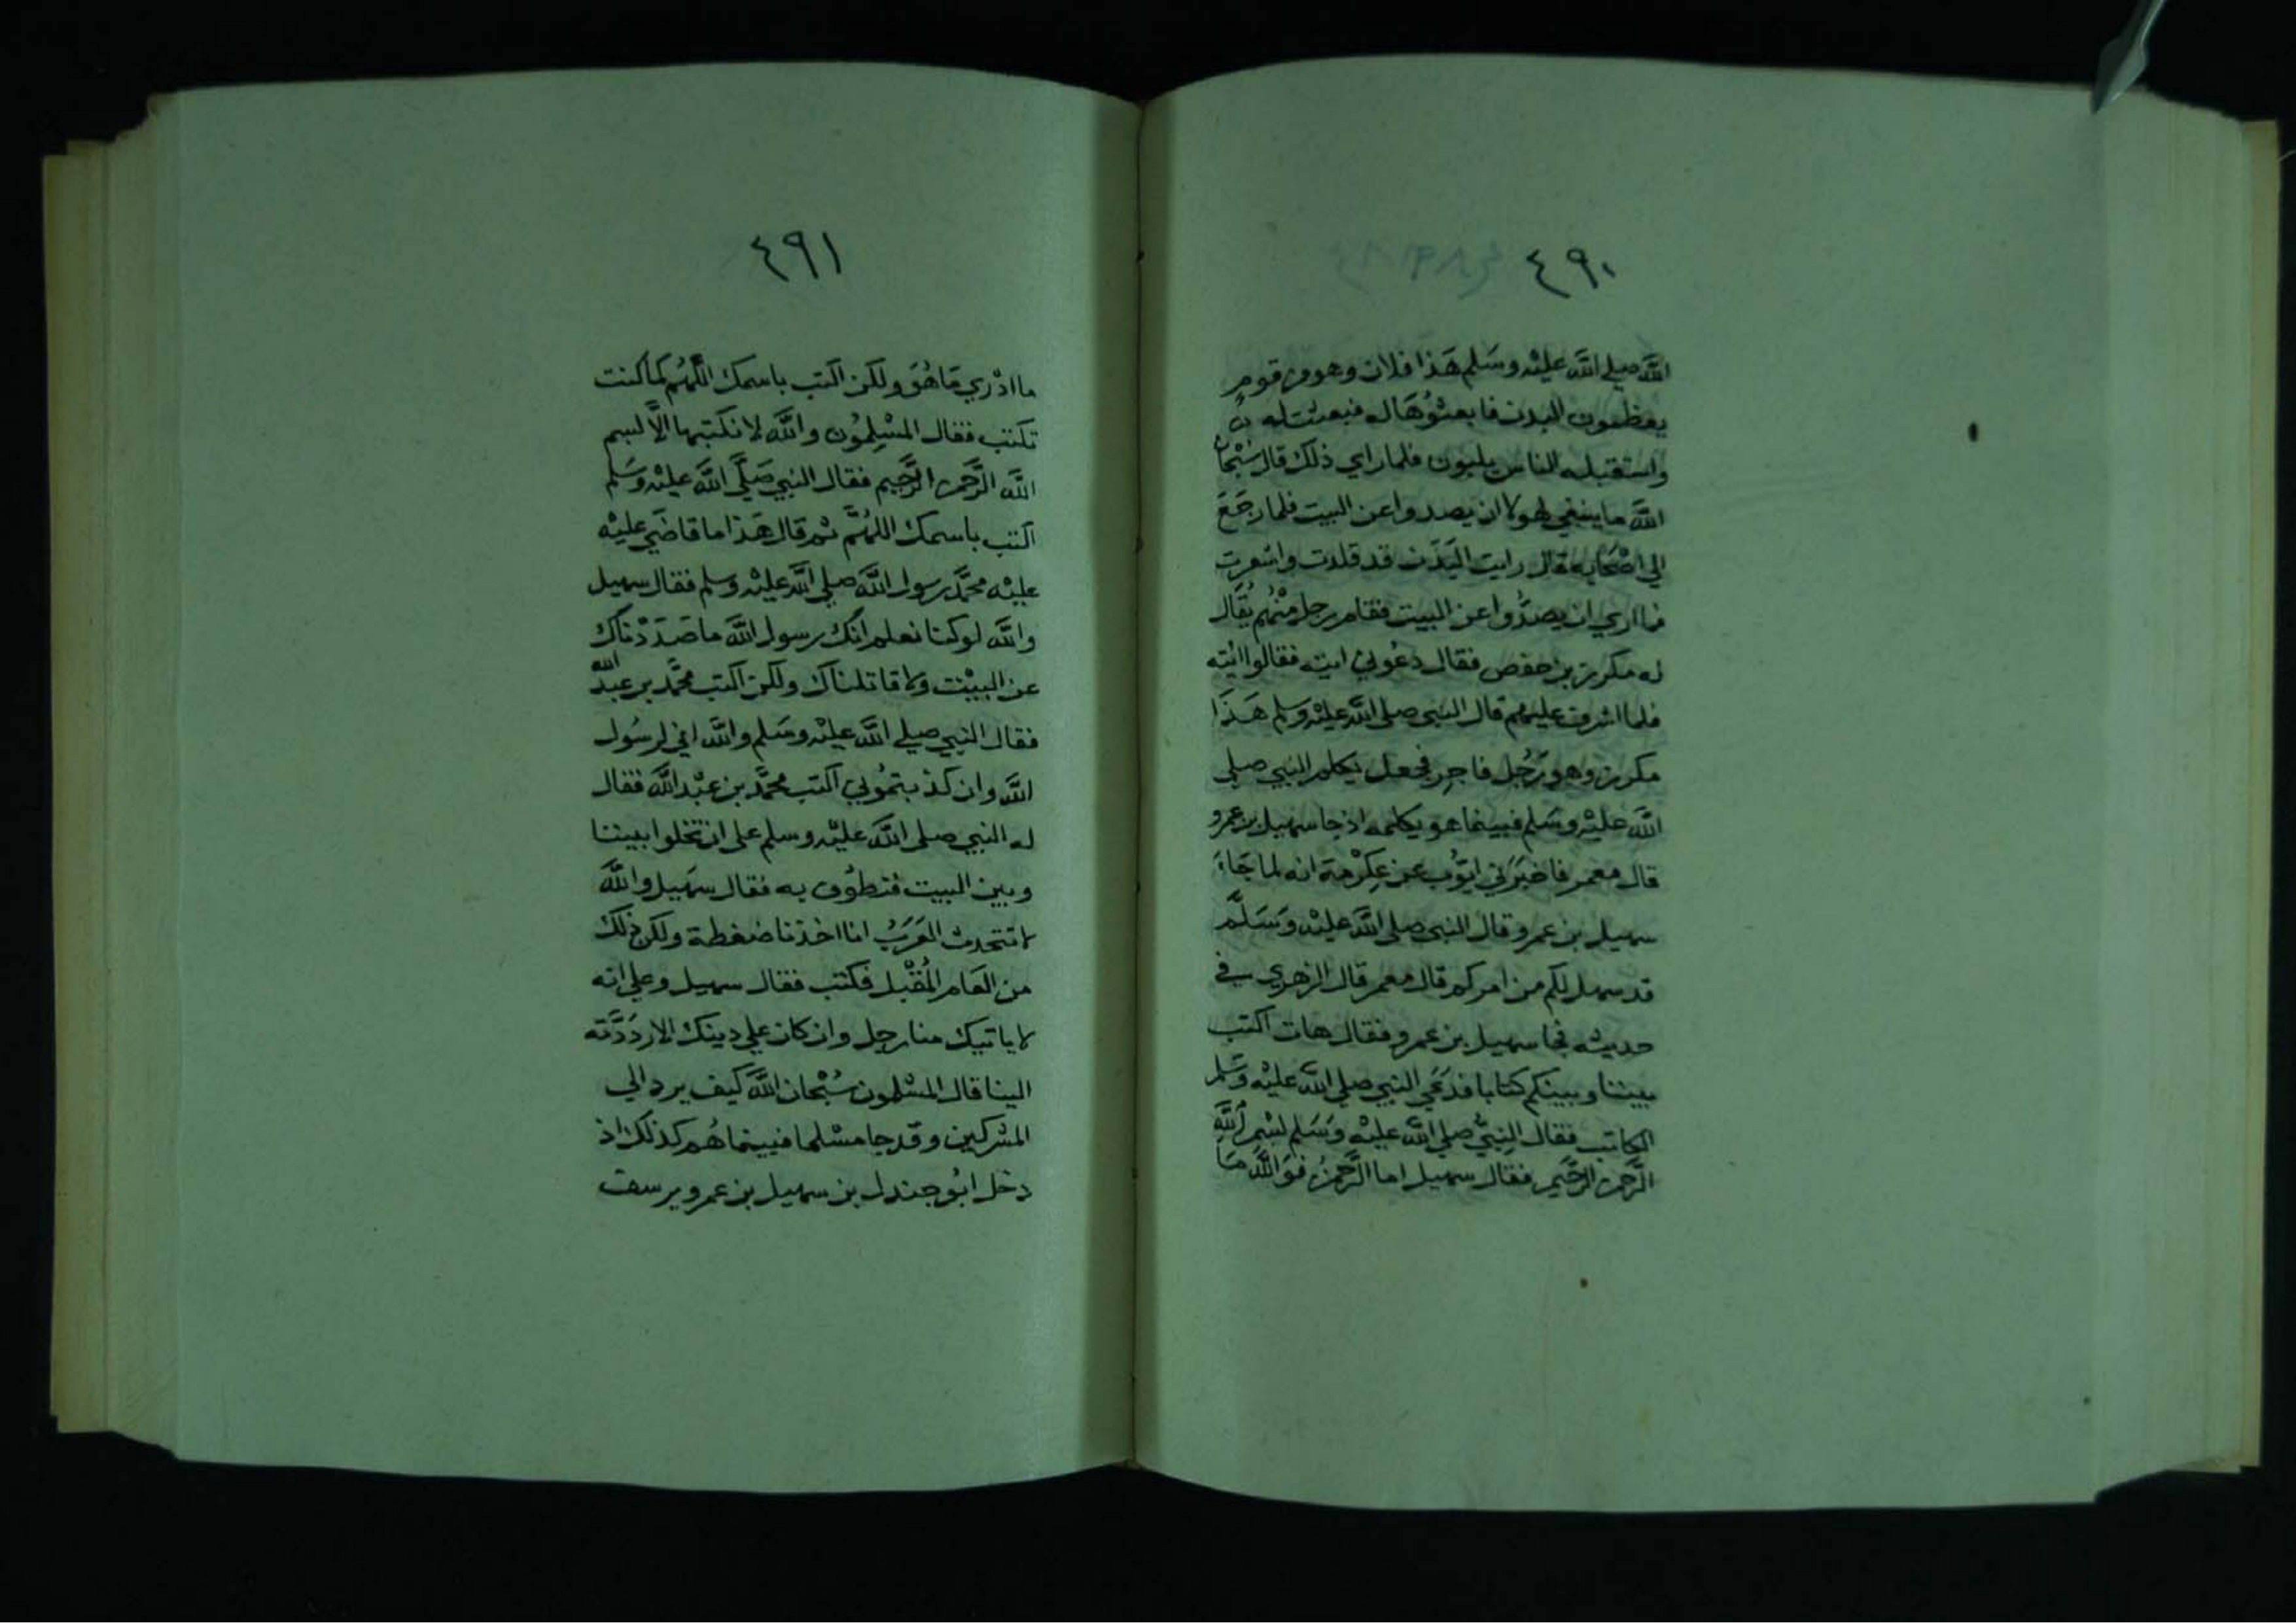 ٤٩٠
الله صلي الله عليْه وسَلم هَذا فلان وهو من قوم
يعظمون البدن فابعثُوهَا له فبعثت له
واستقبله الناس يلبون فلما راي ذلك قال سُبْحان
الله ما ينبغي لهولا ان يصدوا عن البيت فلما رجَعَ
الي اصْحَابه قال رايت البَدْن قد قلدت واشعرت
فما اري ان يصدُّوا عن البيت فقام رجل منْهُم يُقَال
له مكرز بن حفص فقال دعُوني اتيه فقالوا ائته
فلما اشرف عليهم قال النبي صلى الله عليْه وسلم هَذَا
مكرز وهو رَجُل فاجر فجعل يكلم النبي صلي
الله عليْه وسَلم فبينما هو يكلمه اذ جا سهيل بن عمرو
قال معمر فاخبَرَني ايوُّب عن عِكرْمة انه لما جَاءَ
سهيل بن عمرو قال النبي صلى الله عليْه وَسَلَّم
قد سهل لكم من امركم قال معمر قال الزهري في
حديثه فجا سهيل بن عمرو فقال هات اكتب
بيننا وبينكم كتابا فدَعَي النبي صلي الله عليْه وسَلم
الكاتب فقال النبِيُّ صلي الله عليْه وَسَلم بسْمِ اللَّهِ
الرَّحمن الرَّحيم فقال سهيل اما الرَّحمنُ فوَاللَّهِ مَا
٤٩١
ما ادْري مَا هُوَ ولكن اكتب باسمك اللَّهُم كما كنت
تكتب فقال المسْلِمُون والله لا نكتبها الَّا بسم
الله الرَّحمن الرَّحيم فقال النبي صَلَّي الله عليْه وسَلم
اكتب باسمك اللهُمَّ ثم قال هَذا ما قاضَي عليْه
عليْه محمَّد رسول الله صلي الله عليْه وسلم فقال سهيل
والله لو كنا نعلم انك رسول الله ما صَدَدْناك
عن البيْت ولا قاتلناك ولكن اكتب محمَّد بن عبد الله
فقال النبي صلي الله عليْه وسَلم والله اني لرسُول
الله وان كذبتمُوني اكتب محمَّد بن عبْد الله فقال
له النبي صلى الله عليْه وسلم على ان تخلوا بيننا
وبين البيت فنطوُف به فقال سهَيل والله
لا تتحدث العَرَبُ انا اخذنا ضغطة ولكن ذلك
من العَام المُقْبل فكتب فقال سهيل وعلي انه
لا ياتيك منا رجل وان كان علي دينك الا رَدَدَّته
الينا قال المسْلمون سُبْحان الله كيف يرد الي
المشركين وقد جا مسْلما فبينما هُم كذلك اذ
دخل ابُو جندل بن سهيل بن عمرو يرسف